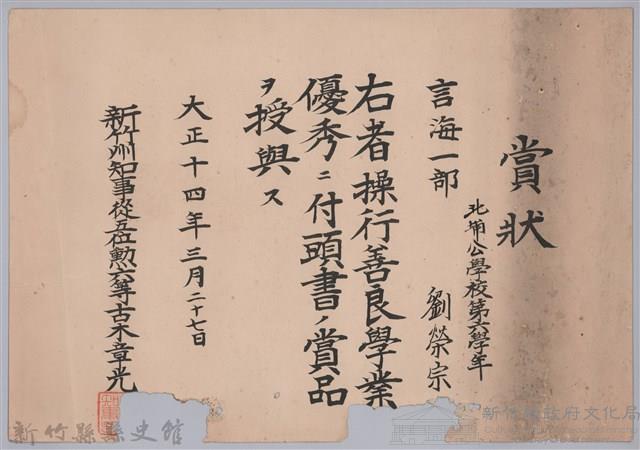 賞狀
北埔公學校第六學年
劉榮宗
言海一部
右者操行善良學業
優秀ニ付頭書ノ賞品
ヲ授與ス
大正十四年三月二十七日
新竹州知事從五位勳六等古木章光
新竹縣縣史館
新竹縣政府文化局